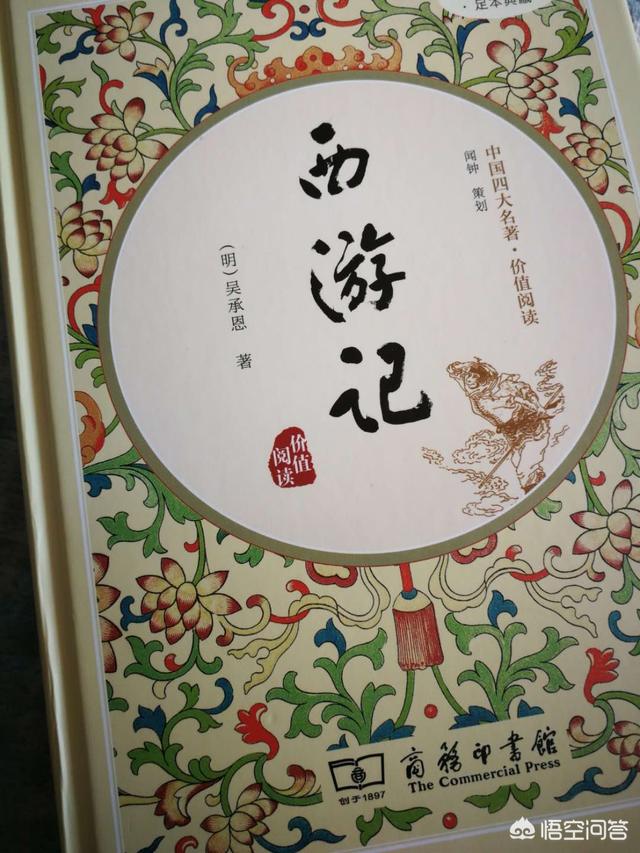 ·足本典藏
中国四大名著·价值阅读
闻钟 策划
西游记
(明)吴承恩 著
价值
阅读
商务印书馆
The Commercial Press
创于1897
悟空问答